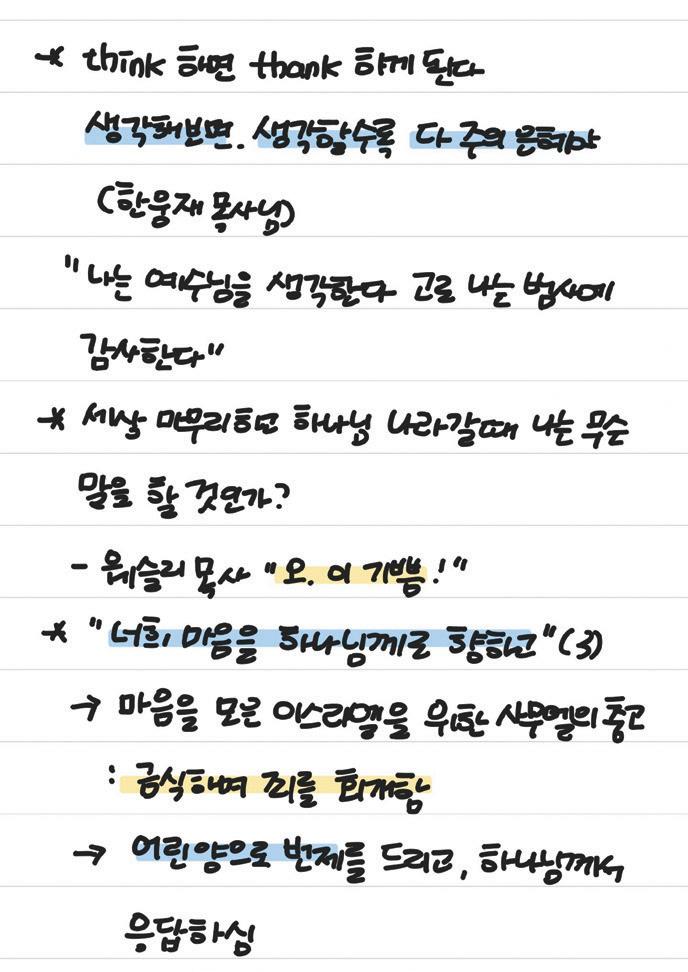 * think 하면 thank 하게 된다
생각해보면. 생각할수록 다 주의 은혜야
(한웅재 목사님)
"나는 예수님을 생각한다 고로 나는 범사에
감사한다"
* 세상 마무리하고 하나님 나라갈때 나는 무슨
말을 할 것인가?
- 웨슬리 목사 "오. 이 기쁨!"
* "너희 마음을 하나님께로 향하고" (3)
→ 마음을 모은 이스라엘을 위한 사무엘의 충고
: 금식하며 죄를 회개함
→ 어린 양으로 번제를 드리고, 하나님께서
응답하심